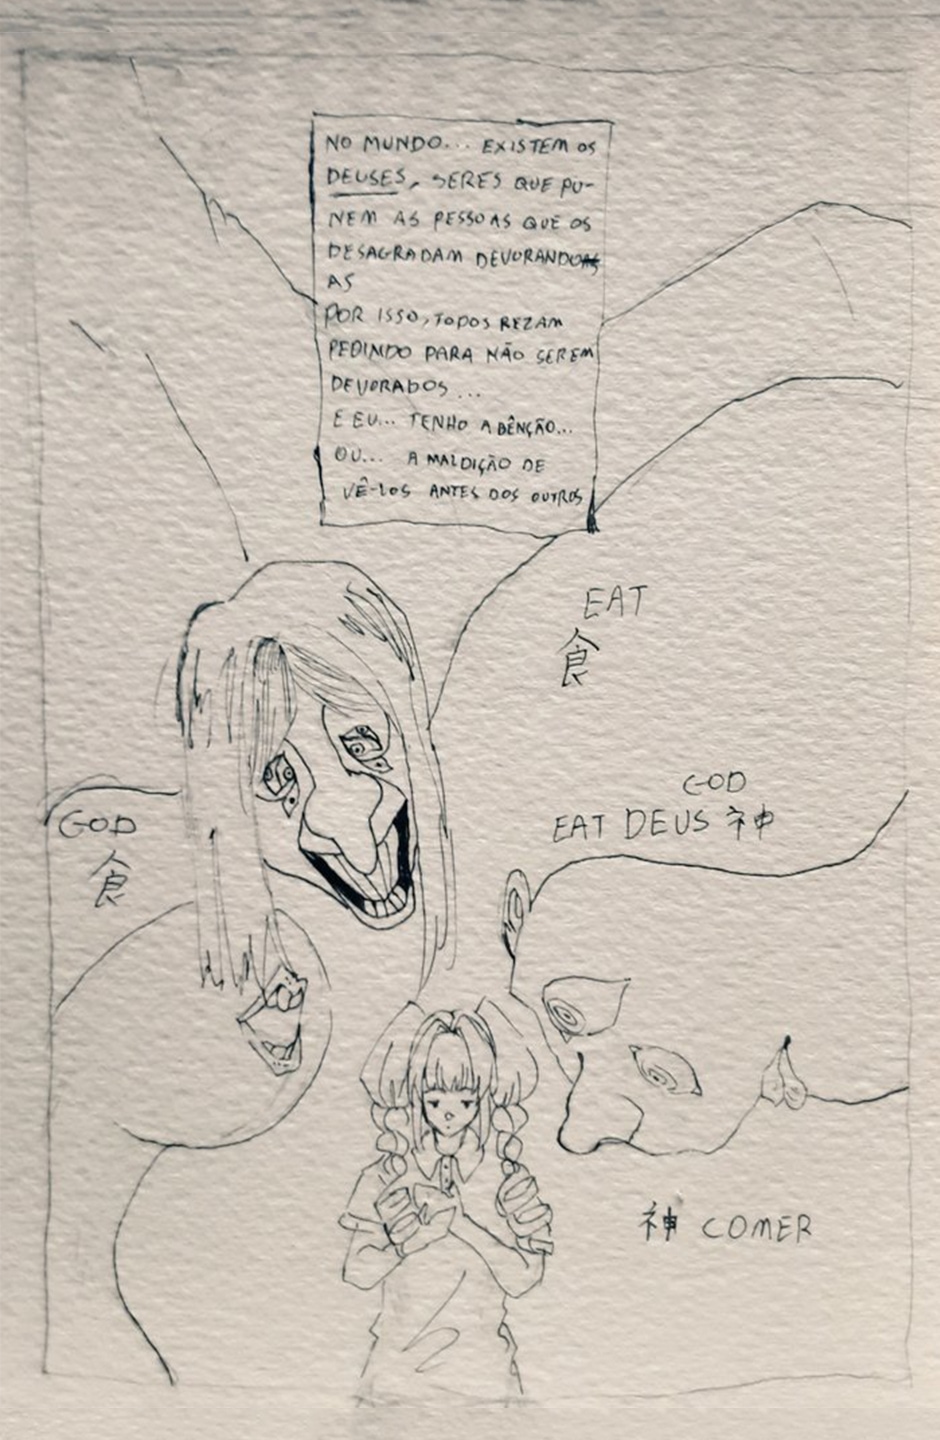 NO MUNDO... EXISTEM OS
DEUSES, SERES QUE PU-
NEM AS PESSOAS QUE OS
DESAGRADAM DEVORANDO
AS
POR ISSO, TODOS REZAM
PEDINDO PARA NÃO SEREM
DEVORADOS...
E EU... TENHO A BÊNÇÃO...
OU... A MALDIÇÃO DE
VÊ-LOS ANTES DOS OUTROS
EAT
食
GOD
EAT DEUS 神
GOD
食
神 COMER